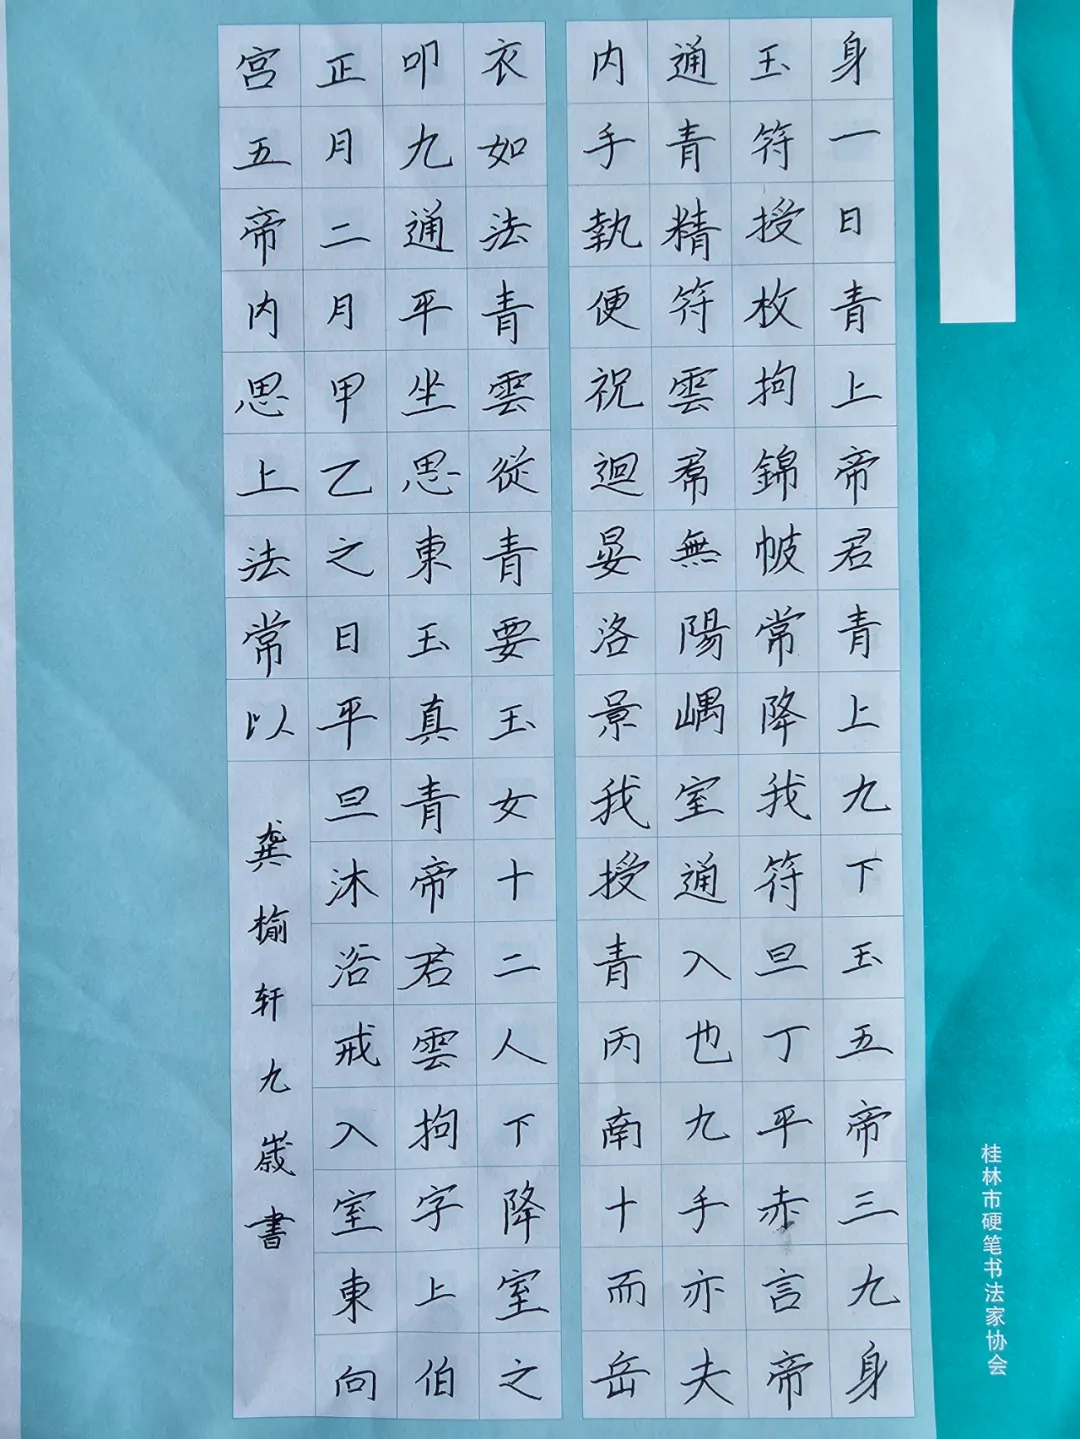 身一日青上帝君青上九下玉五帝三九身
玉符授枚拘錦帔常降我符旦丁平赤言帝
通青精符雲帬無陽嵎室通入也九手亦夫
内手執便祝迴晏洛景我授青丙南十而岳
衣如法青雲從青要玉女十二人下降室之
叩九通平坐思東玉真青帝君雲拘字上伯
正月二月甲乙之日平旦沐浴戒入室東向
宮五帝内思上法常以
龚榆轩九歲書
桂林市硬笔书法家协会